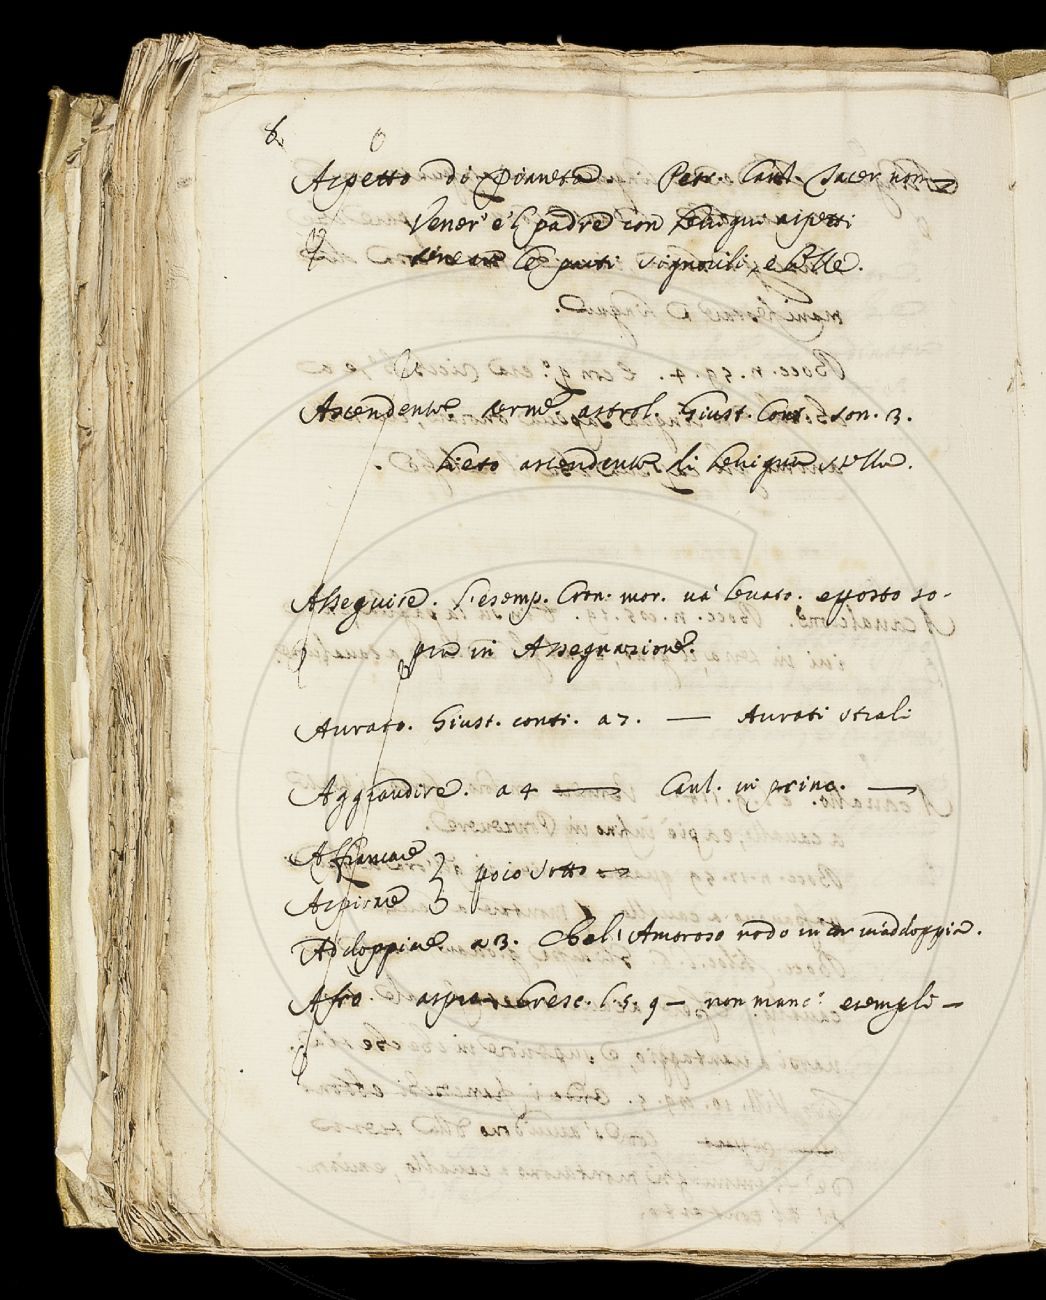 8
Aspetto di Pianeta. Petr. Canz. Tacer non
Vener' e 'l padre con benigni aspetti
tenean le parti signorili, e belle.
Ascendente. term. astrol. Giust. Cont. son. 3.
Lieto ascendente, li benigna stella.
Asseguire. L'esemp. Cron. mor. va levato, e posto so-
pra in Assegnazione.
Aurato. Giust. conti. a 7. — Aurati strali
Aggrandire. a 4 — Cavl. in princ. —
Affrancare
Aspirare } poco sotto
Addoppiare. a 3. Bel. Amoroso nodo in cor raddoppia.
Afro. aspro. Cresc. l. 5. 9 — non manc. esempli —